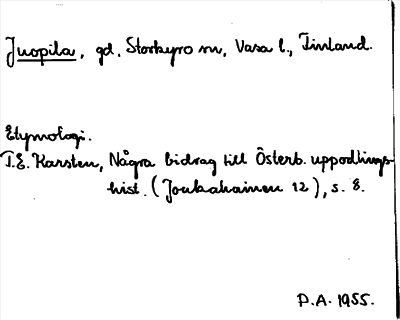 Juopila, gd, Storkyro sn, Vasa l., Finland.
Etymologi.
T.E. Karsten, Några bidrag till Österb. uppodlings-
hist. (Joukahainen 12), s. 8.
P.A. 1955.